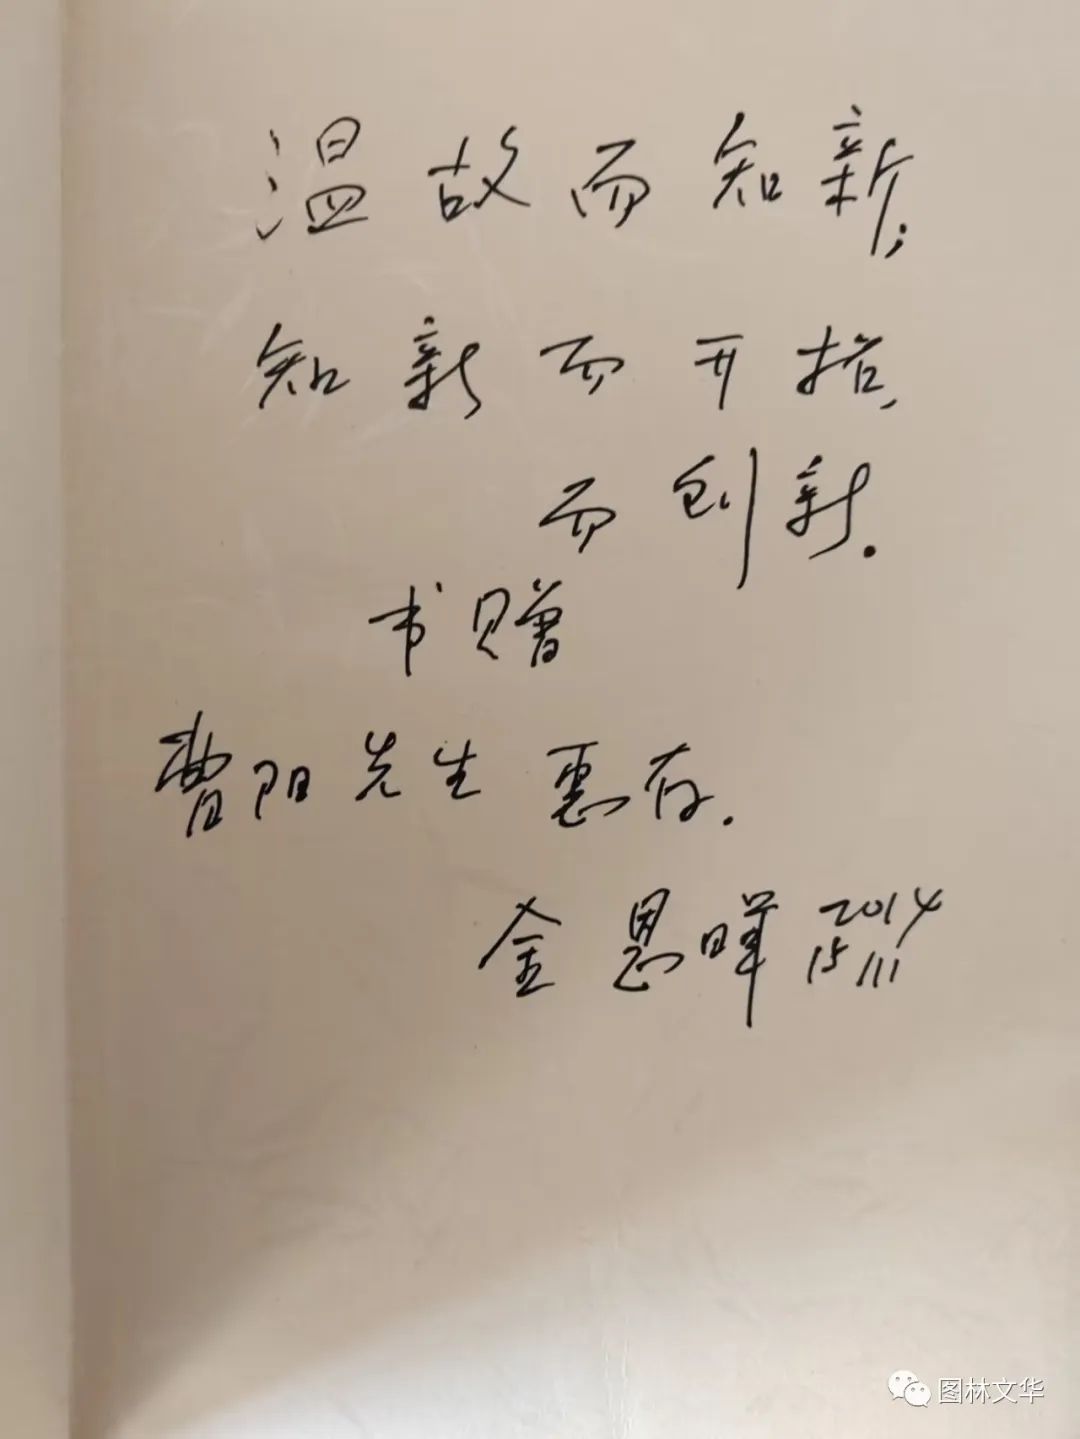 温故而知新;
知新而开拓,
而创新.
书赠
曹阳先生惠存.
金恩晖 2014
15/11
图林文华